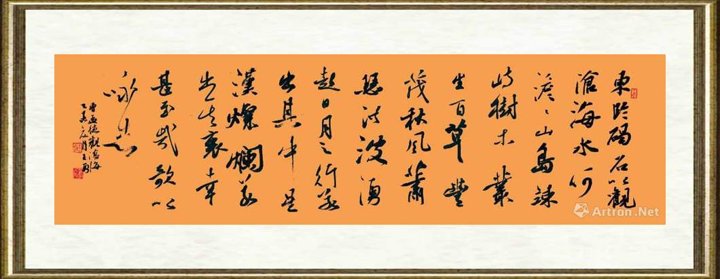 東臨碣石以觀
滄海水何
澹〻山島竦
峙樹木叢
生百草豐
茂秋風蕭
瑟洪波湧
起日月之行若
出其中星
漢燦爛若
出其裏幸
甚至哉歌以
詠志
曹孟德觀滄海
Artron.Net